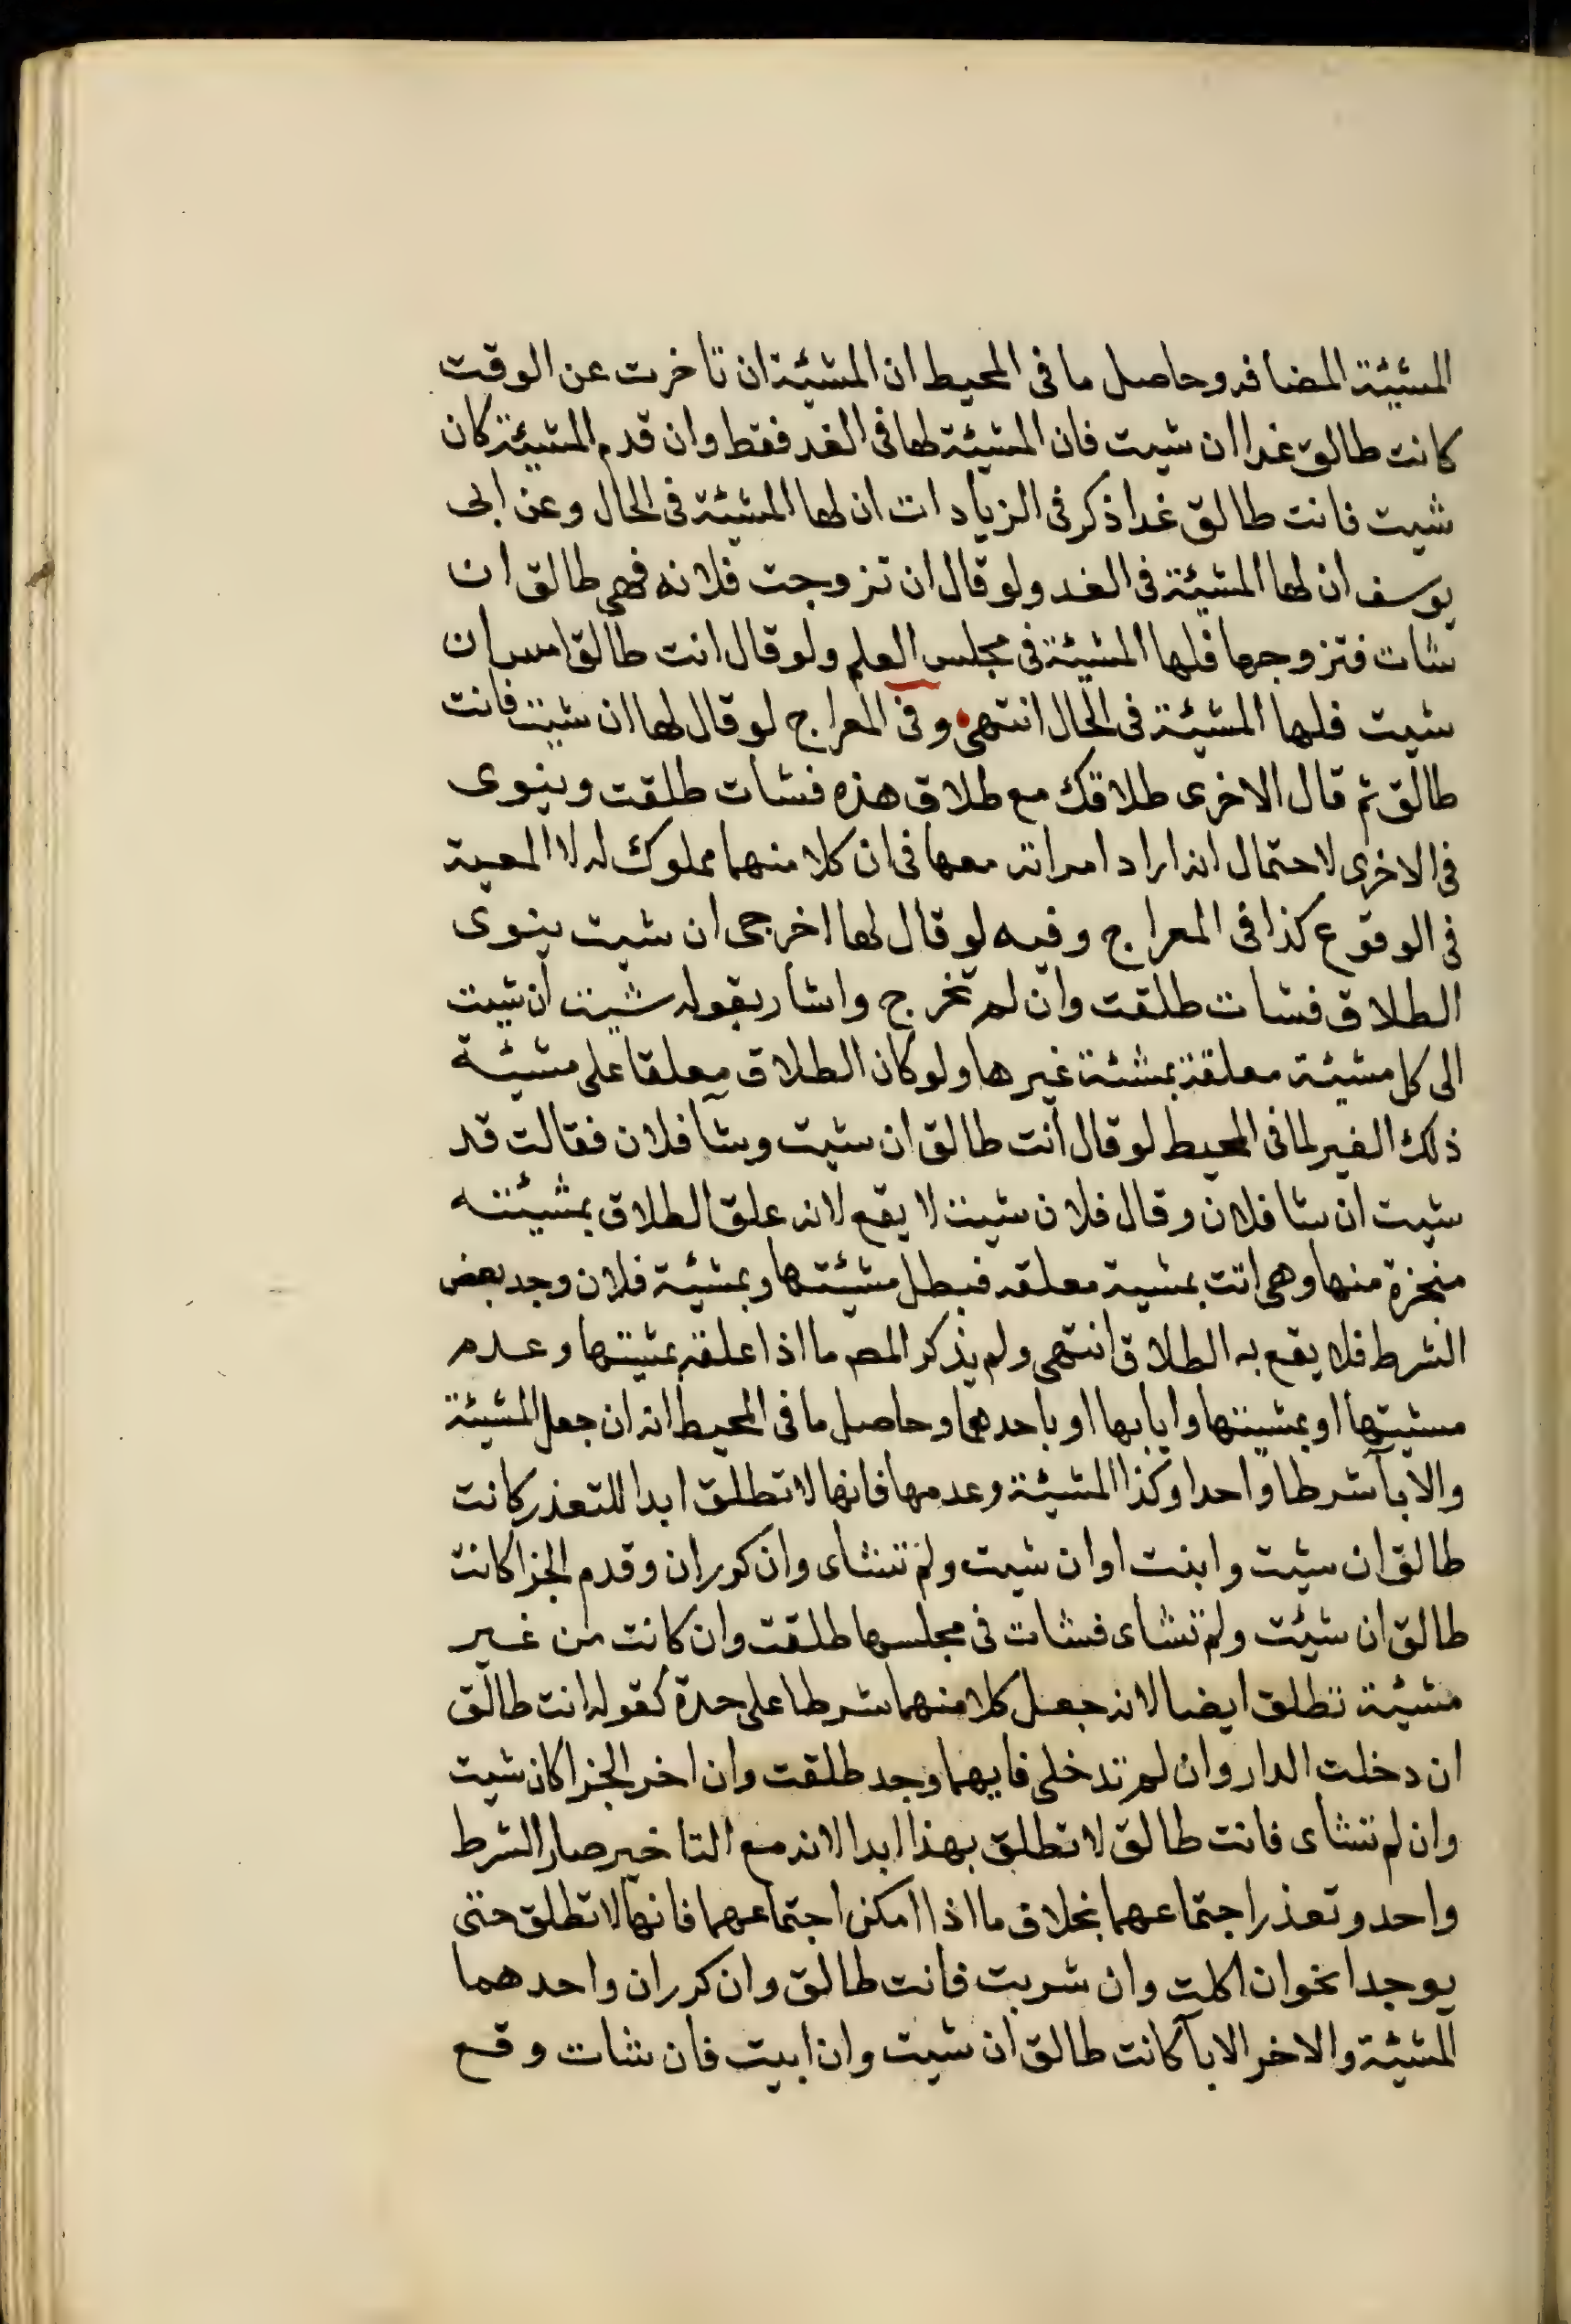 المشيئة المضافه وحاصل ما فى المحيط ان المشيئة ان تاخرت عن الوقت
كانت طالق غدا ان شيت فان المشيئة لها فى الغد فقط وان قدم المشيئة كان
شيت فانت طالق غدا ذكر فى الزيادات ان لها المشيئة فى الحال وعن ابى
يوسف ان لها المشيئة فى الغد ولو قال ان تزوجت فلانه فهى طالق ان
شات فتزوجها فلها المشيئة فى مجلس العلم ولو قال انت طالق امس ان
شيت فلها المشيئة فى الحال انتهى وفى المعراج لو قال لها ان شيت فانت
طالق ثم قال الاخرى طلاقك مع طلاق هذه فشات طلقت وينوى
فى الاخرى لاحتمال انه اراد امراته معها فى ان كلا منهما مملوك له لا المعية
فى الوقوع كذا فى المعراج وفيه لو قال لها اخرجى ان شيت ينوى
الطلاق فشات طلقت وان لم تخرج واشار بقوله شيت ان شيت
الى كل مشيئة معلقة بمشئة غيرها ولو كان الطلاق معلقا على مشيئة
ذلك الغير لما فى المحيط لو قال انت طالق ان شيت وشآ فلان فقالت قد
شيت ان شا فلان وقال فلان شيت لا يقع لانه علق الطلاق بمشيئته
منجزة منها وهى اتت بمشية معلقه فبطل مشيئتها وبمشيئة فلان وجد بعض
الشرط فلا يقع به الطلاق انتهى ولم يذكر المص ما اذا علقه بمشيتها وعدم
مسئيتها او بمشيتها وابابها او باحدهما وحاصل ما فى المحيط انه ان جعل المشيئة
والابآ شرطا واحدا وكذا المشيئة وعدمها فانها لا تطلق ابدا للتعذر كانت
طالق ان شيت وابنت او ان شيت ولم تشاى وان كرر ان وقدم الجزا كانت
طالق ان شيئت ولم تشاى فشات فى مجلسها طلقت وان كانت من غير
مشيئة تطلق ايضا لانه جعل كلا منهما شرطا على حدة كقوله انت طالق
ان دخلت الدار وان لم تدخلى فايهما وجد طلقت وان اخر الجزا كان شيت
وان لم تشاى فانت طالق لا تطلق بهذا ابدا لانه مع التاخير صار الشرط
واحد وتعذر اجتماعهما بخلاف ما اذا امكن اجتماعهما فانها لا تطلق حتى
يوجدا نحو ان اكلت وان شربت فانت طالق وان كرر ان واحدهما
المشيئة والاخر الابآ كانت طالق ان شيت وان ابيت فان شات وقع